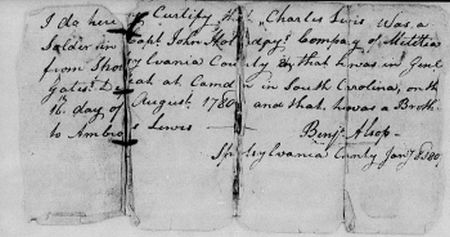 I do here y Curtify that Charles Lewis was a
Solder in Capt. John Hol days Company of Militia
from Spo ylvania County & that he was in Genl
Gates D eat at Camden in South Carolina, on th
16th day of August 1780 and that he was a Broth
to Ambro s Lewis
Benjn Alsop
Spotsylvania County Jany